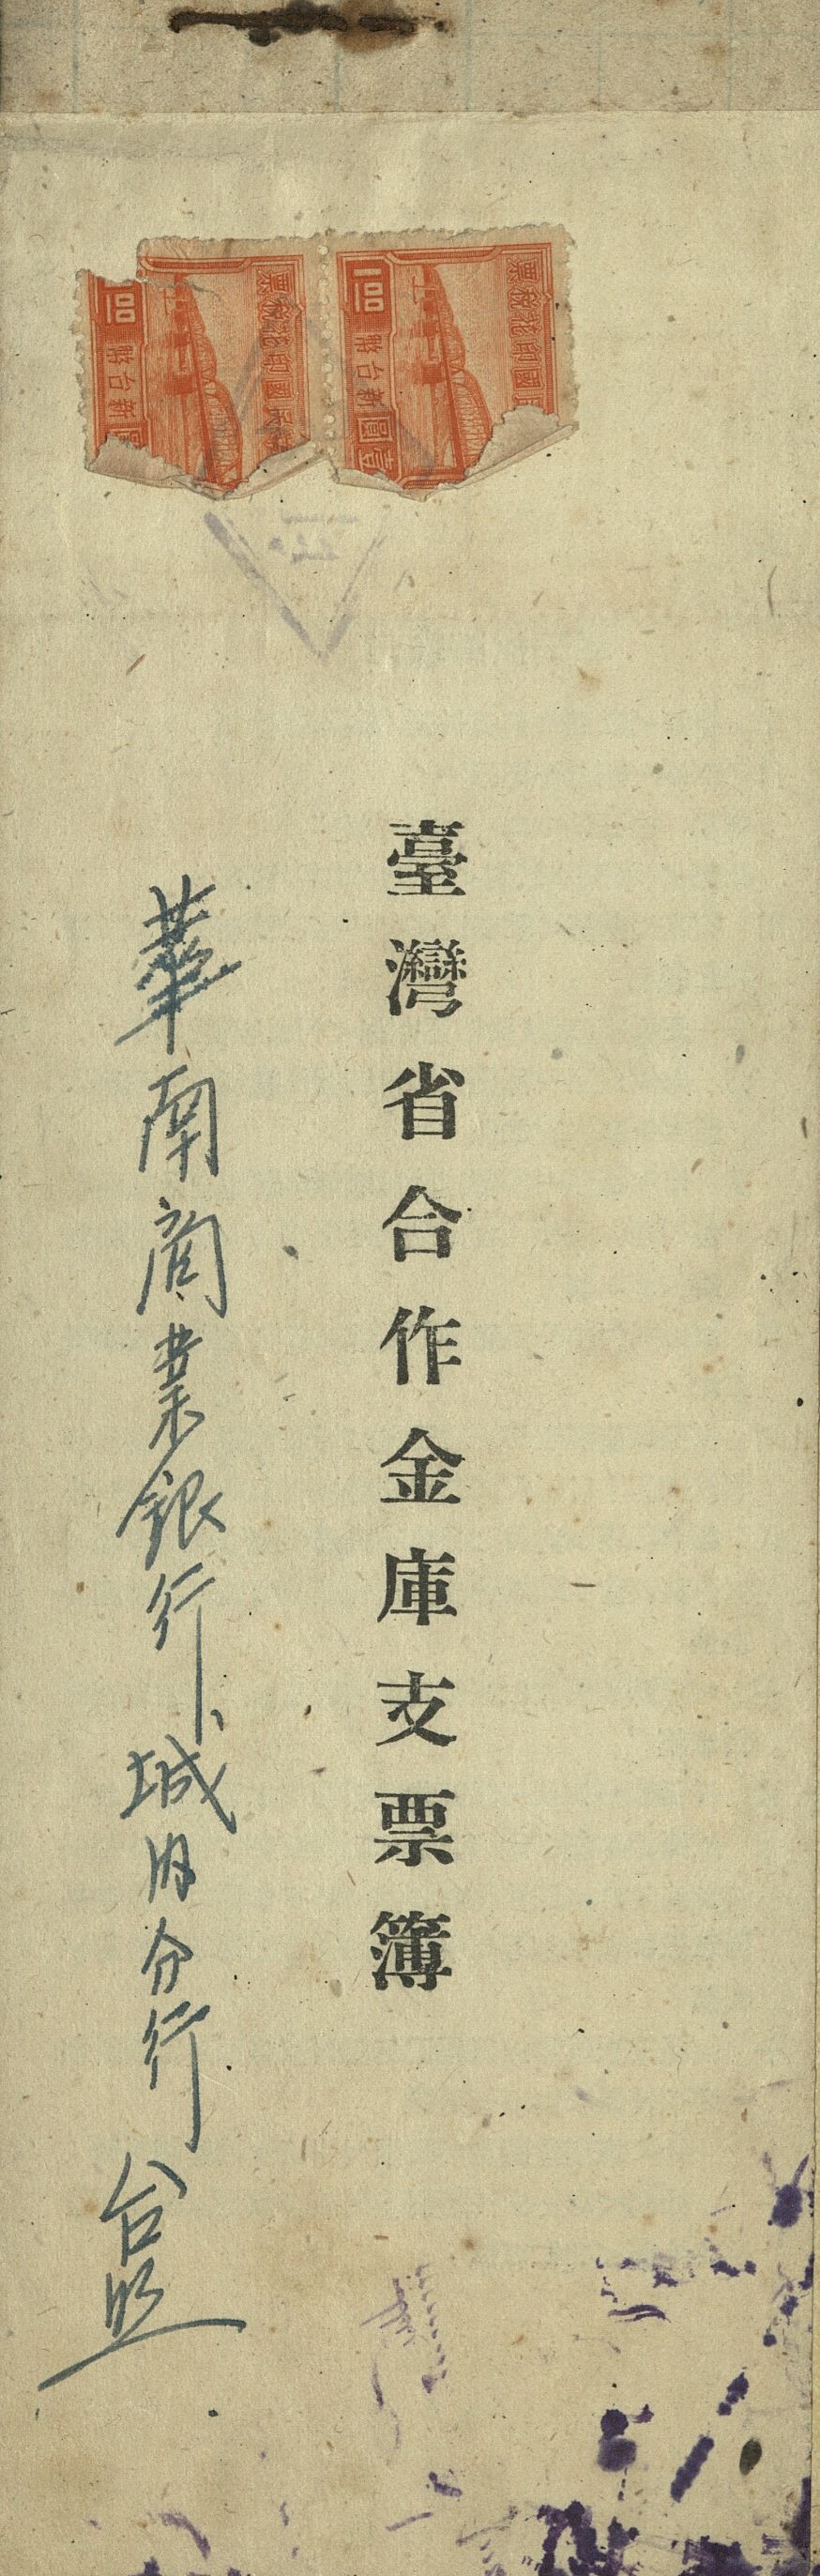 臺灣省合作金庫支票簿
華南商業銀行城內分行 台照
中華民國印花稅票
1.00
壹圓 新台幣
國印花稅票
1.00
圓 新台幣